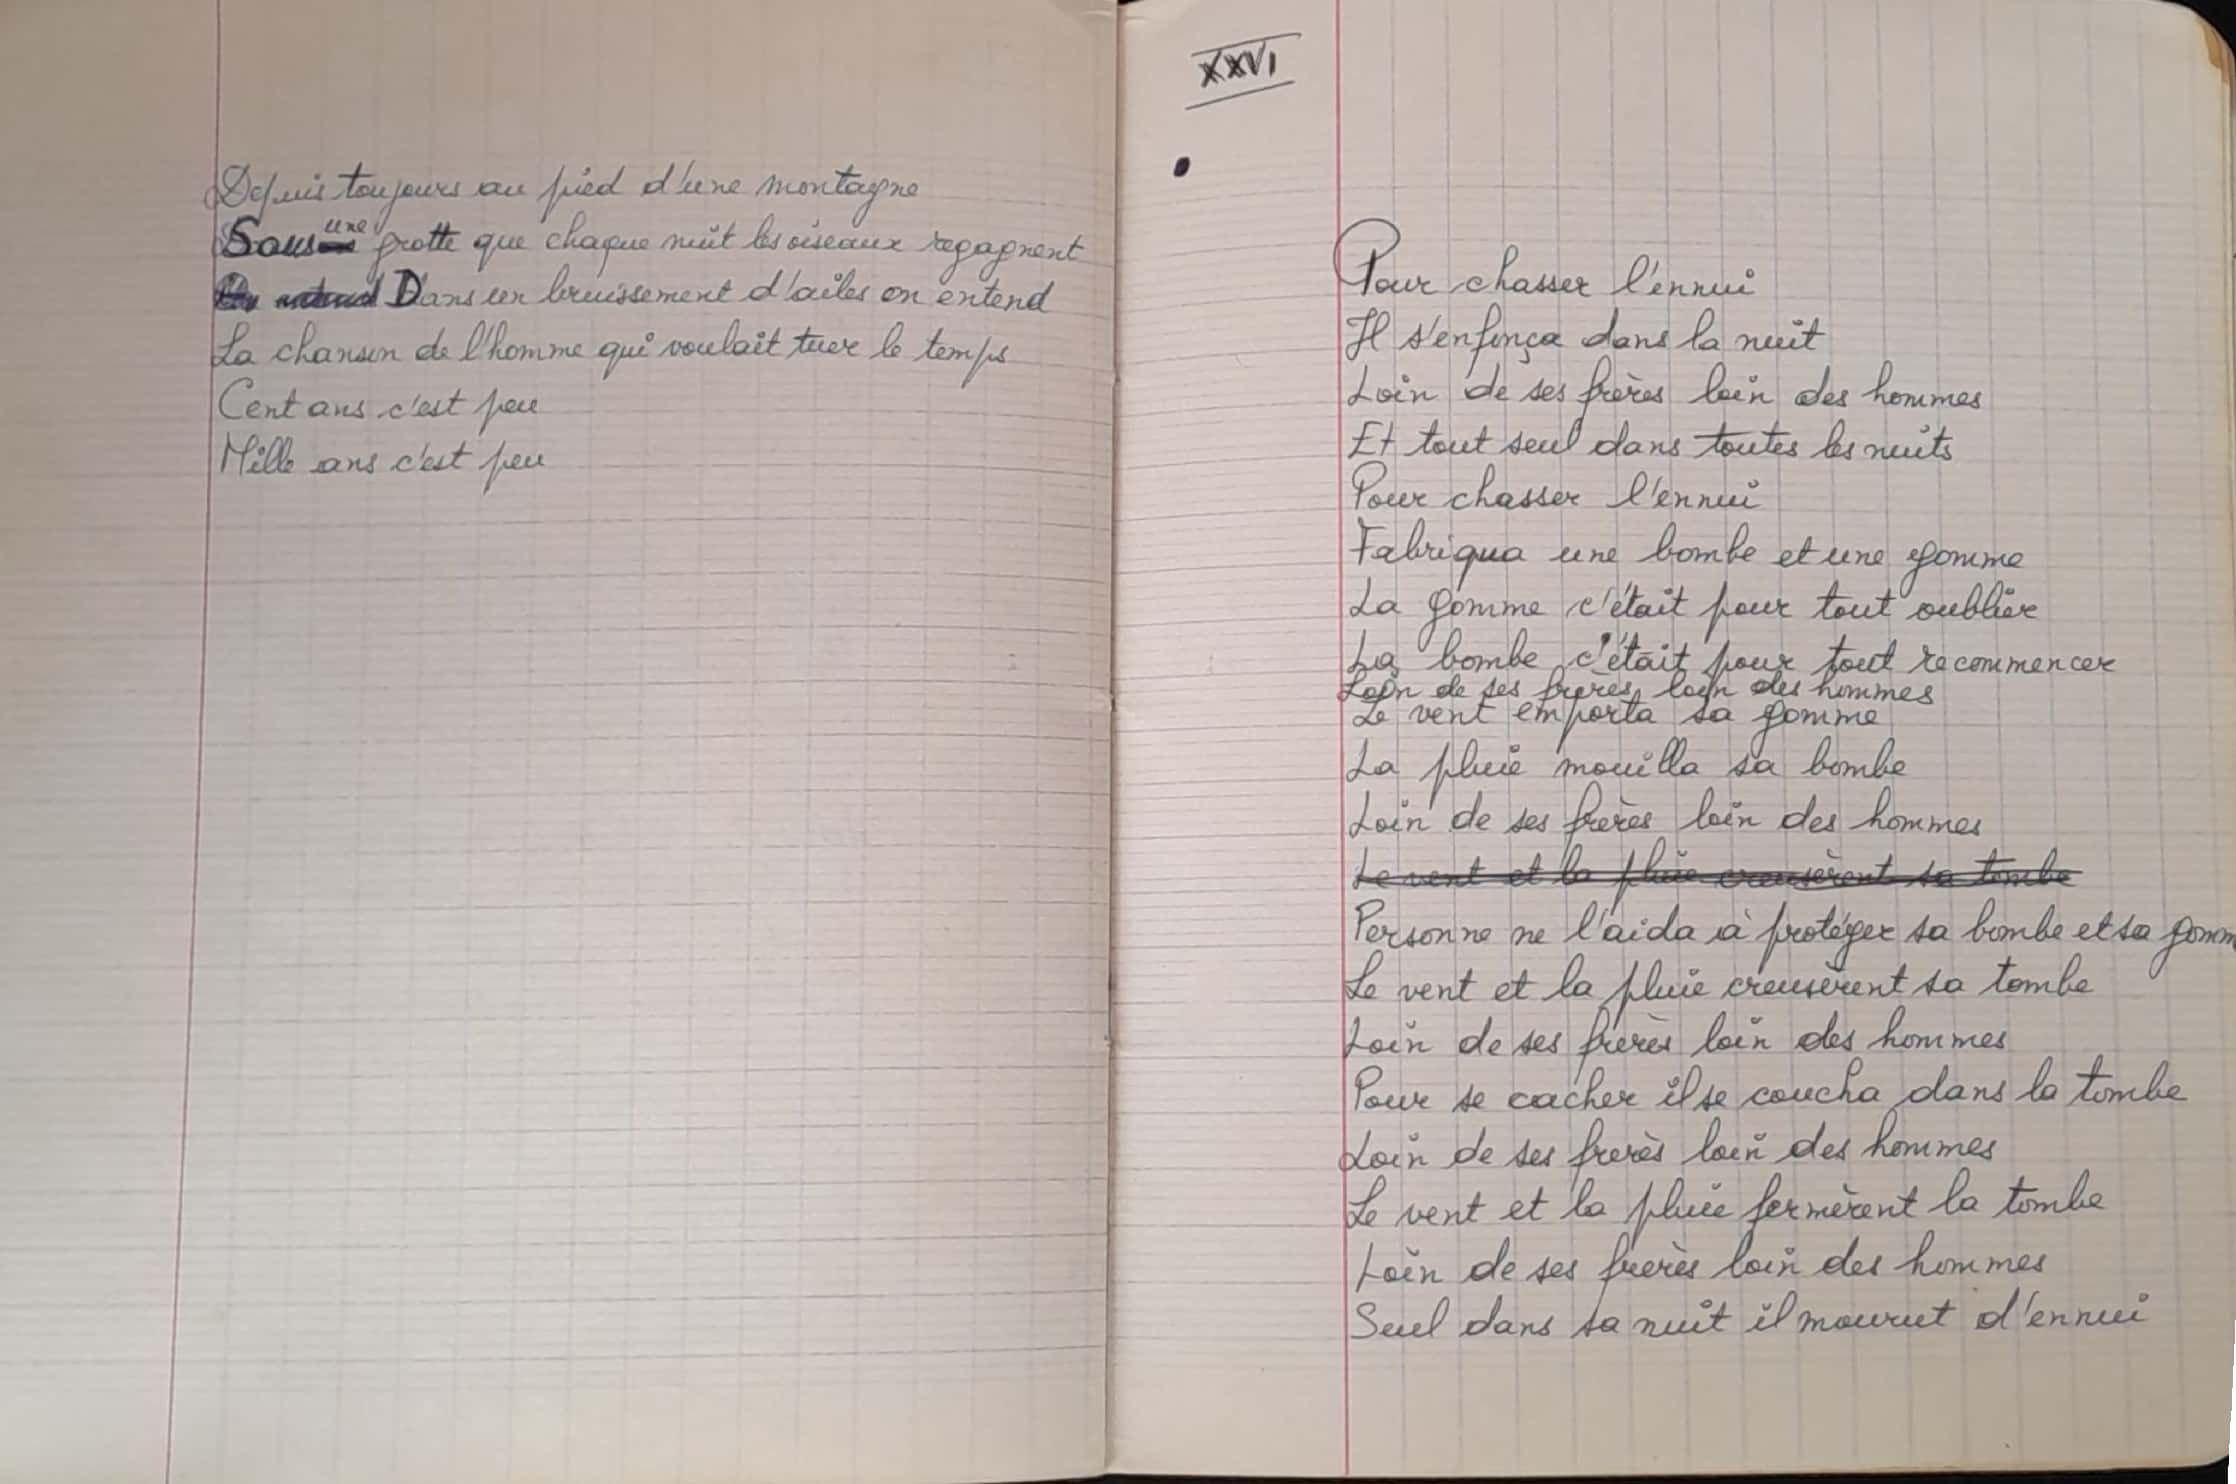 Depuis toujours au pied d'une montagne
Sous une grotte que chaque nuit les oiseaux regagnent
Dans un bruissement d'ailes on entend
La chanson de l'homme qui voulait tuer le temps
Cent ans c'est peu
Mille ans c'est peu
XXVI
Pour chasser l'ennui
Il s'enfonça dans la nuit
Loin de ses frères loin des hommes
Et tout seul dans toutes les nuits
Pour chasser l'ennui
Fabriqua une bombe et une gomme
La gomme c'était pour tout oublier
La bombe c'était pour tout recommencer
Loin de ses frères loin des hommes
Le vent emporta sa gomme
La pluie mouilla sa bombe
Loin de ses frères loin des hommes
Le vent et la pluie creusèrent sa tombe
Personne ne l'aida à protéger sa bombe et sa gomm
Le vent et la pluie creusèrent sa tombe
Loin de ses frères loin des hommes
Pour se cacher il se coucha dans la tombe
Loin de ses frères loin des hommes
Le vent et la pluie fermèrent la tombe
Loin de ses frères loin des hommes
Seul dans sa nuit il mourut d'ennui